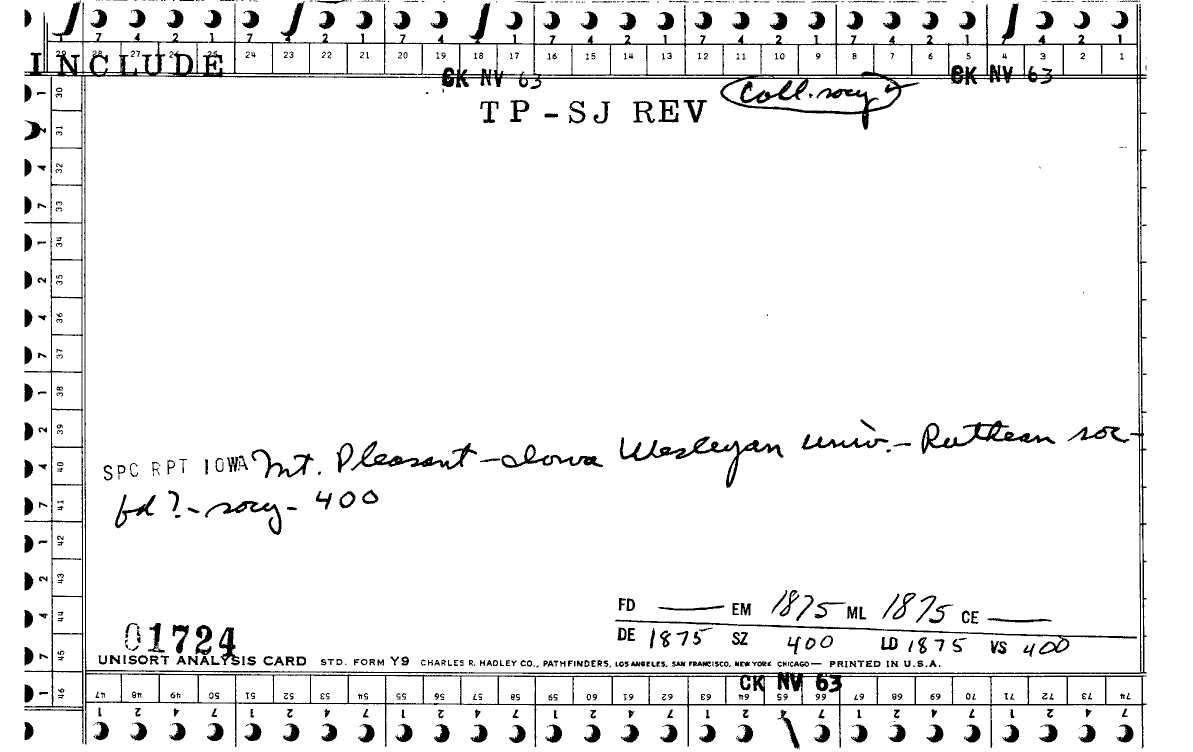 7 4 2 1 7 4 2 1 7 4 2 1 7 4 2 1 7 4 2 1 7 4 2 1 7 4 2 1
29 28 27 26 25 24 23 22 21 20 19 18 17 16 15 14 13 12 11 10 9 8 7 6 5 4 3 2 1
INCLUDE
CK NV 63 CK NV 63
TP-SJ REV Coll. socy
1 30
2 31
4 32
7 33
1 34
2 35
4 36
7 37
1 38
2 39
4 40
7 41
1 42
2 43
4 44
7 45
1 46
SPC RPT IOWA Mt. Pleasant - Iowa Wesleyan Univ. - Ruthean soc -
fd ? - socy - 400
FD — EM 1875 ML 1875 CE —
DE 1875 SZ 400 LD 1875 VS 400
01724
UNISORT ANALYSIS CARD STD. FORM Y9 CHARLES R. HADLEY CO., PATHFINDERS, LOS ANGELES, SAN FRANCISCO, NEW YORK CHICAGO — PRINTED IN U.S.A.
CK NV 63
47 48 49 50 51 52 53 54 55 56 57 58 59 60 61 62 63 64 65 66 67 68 69 70 71 72 73 74
1 2 4 7 1 2 4 7 1 2 4 7 1 2 4 7 1 2 4 7 1 2 4 7 1 2 4 7